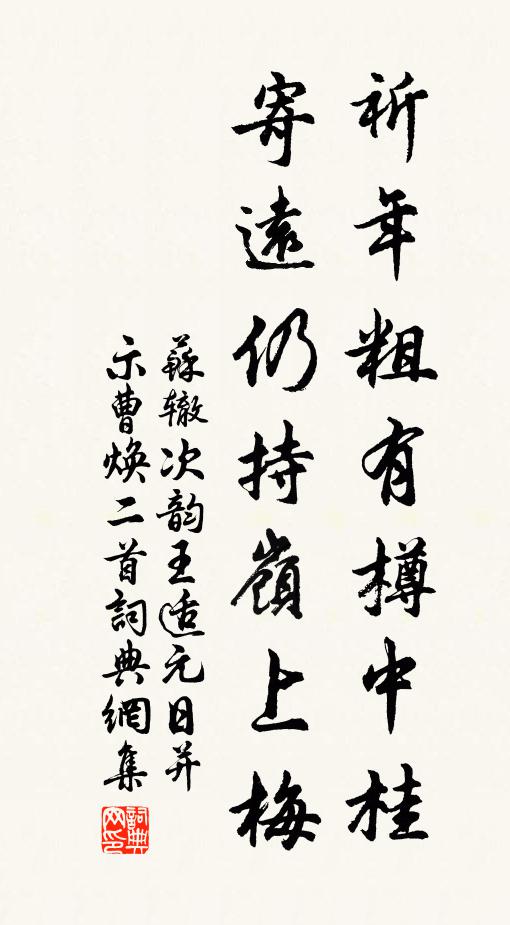 祈年粗有樽中桂
寄遠仍持嶺上梅
蘇辙次韵王适元日并
示曹焕二首詞典網集
詞典网印